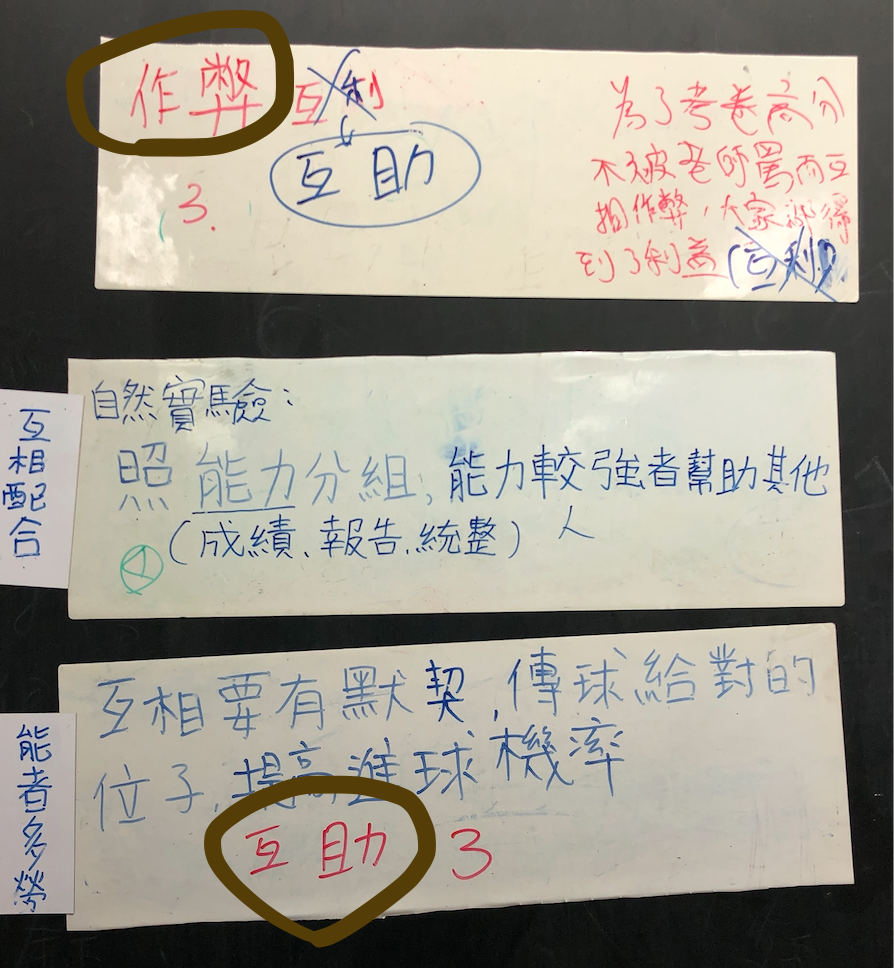 作弊 互利
互助
3.
為了考卷高分
不被老師罵而互
相作弊，大家都得
到了利益（互利）
互相配合
自然實驗：
照能力分組；能力較強者幫助其他
（成績、報告、統整） 人
能者多勞
互相要有默契，傳球給對的
位子，提高進球機率
互助 3